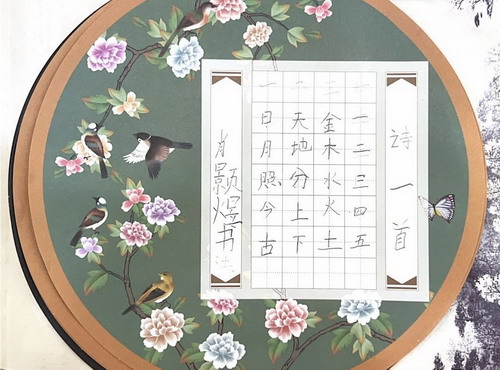 诗一首
一二三四五
金木水火土
天地分上下
日月照今古
肖颢煜书